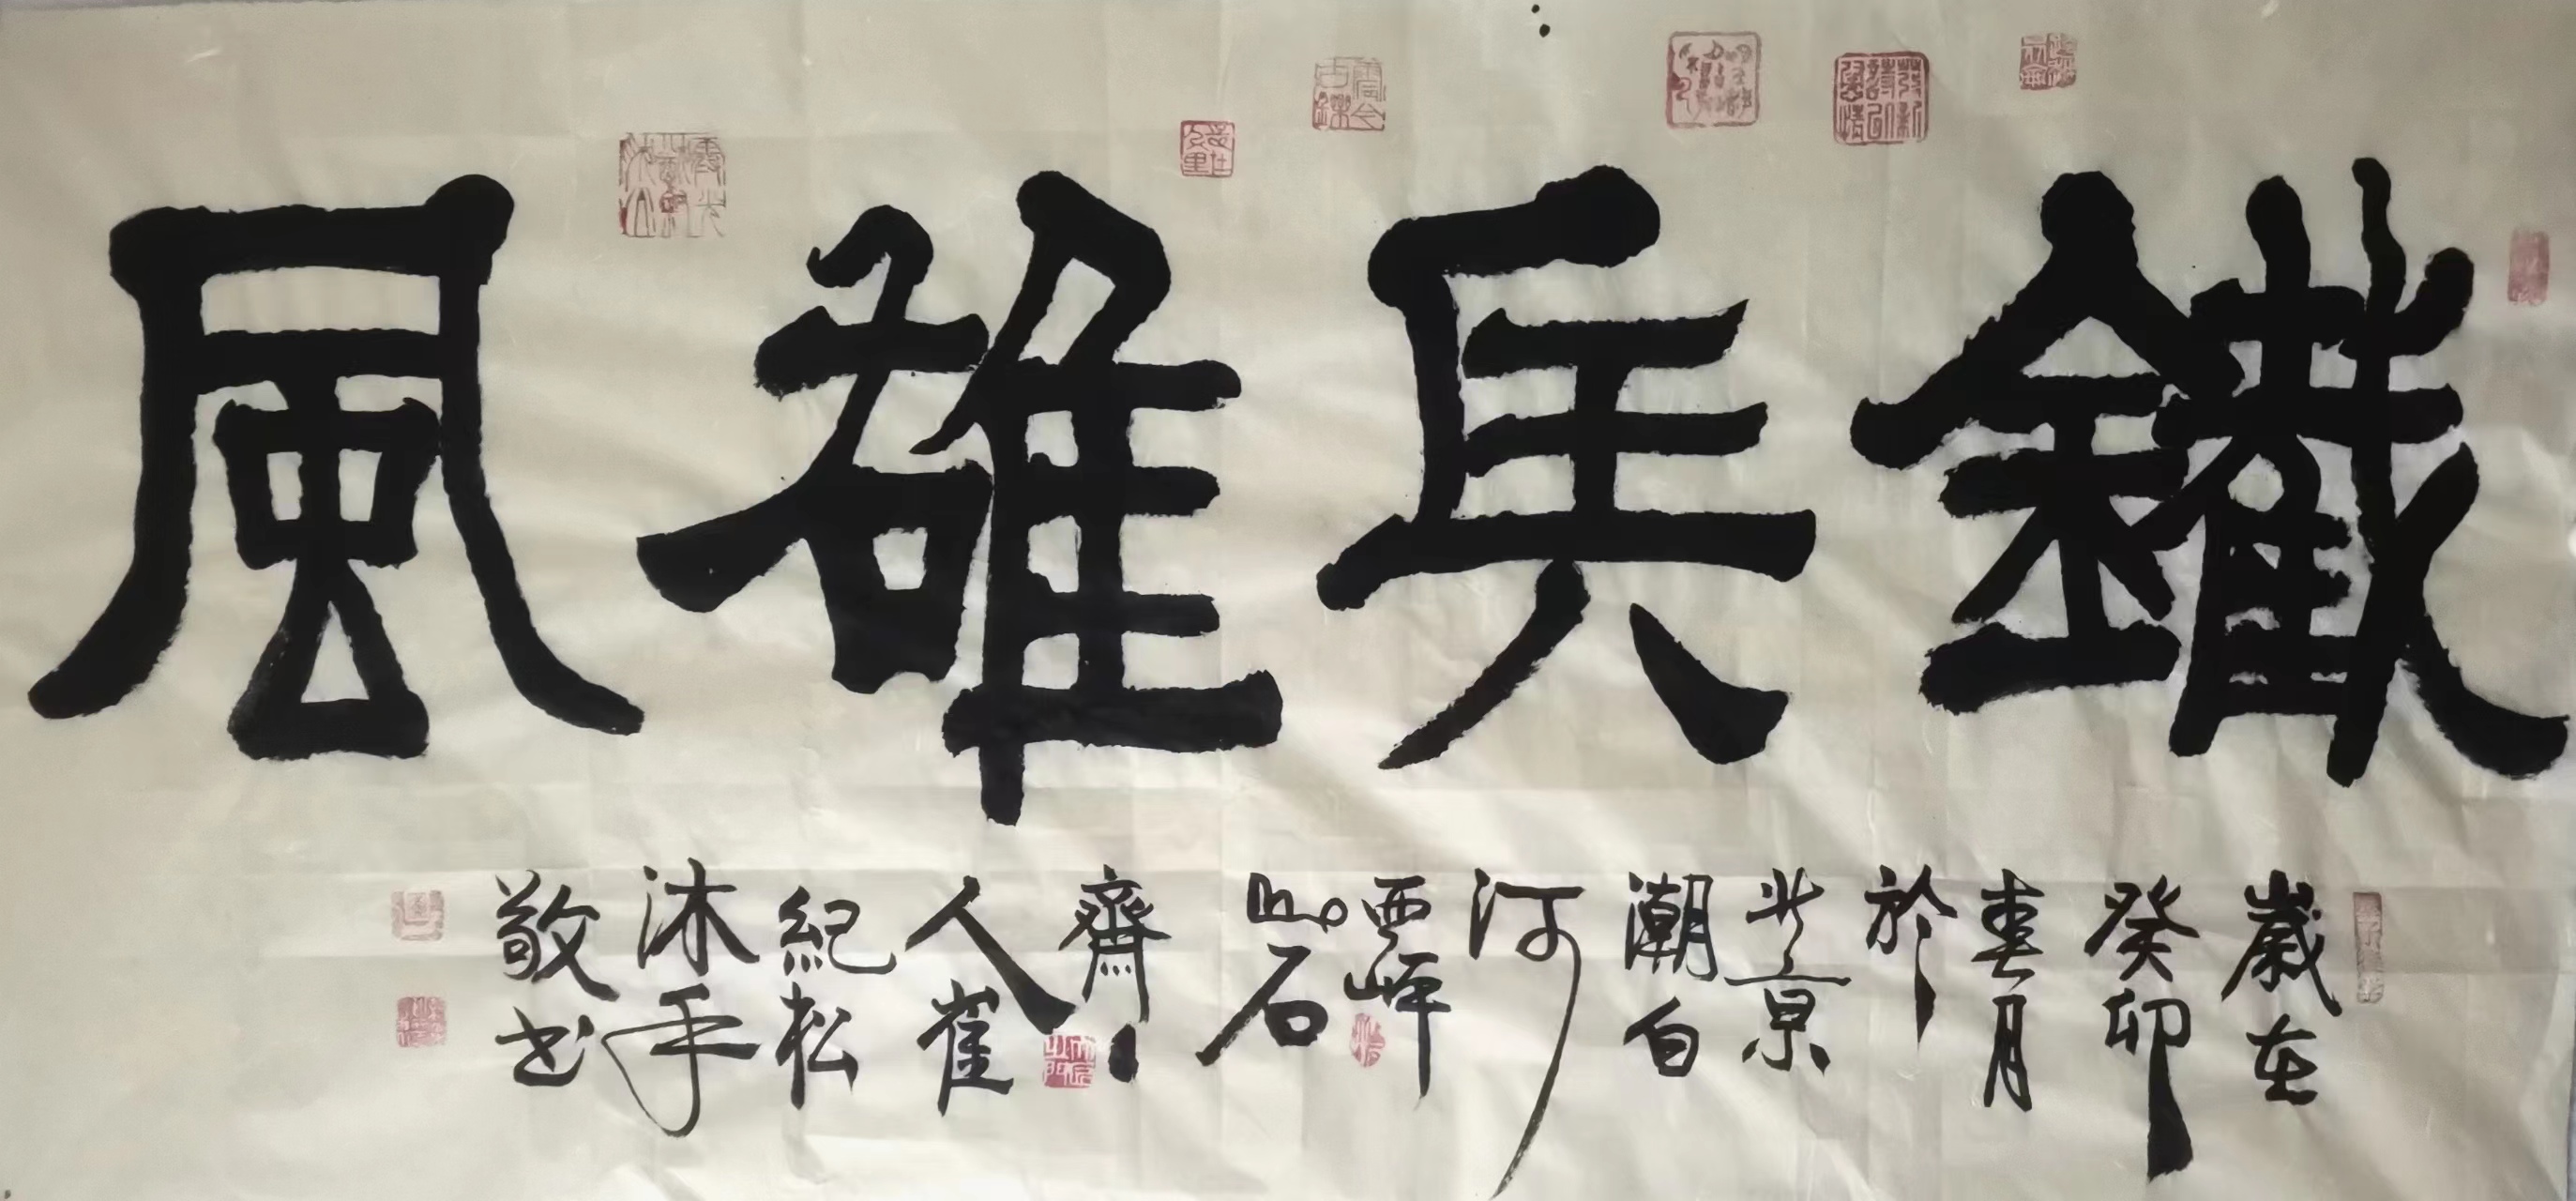 鐵兵雄風
歲在
癸卯
春月
於
北京
潮白
河
西岸
山石
齋
人崔
紀松
沐手
敬书